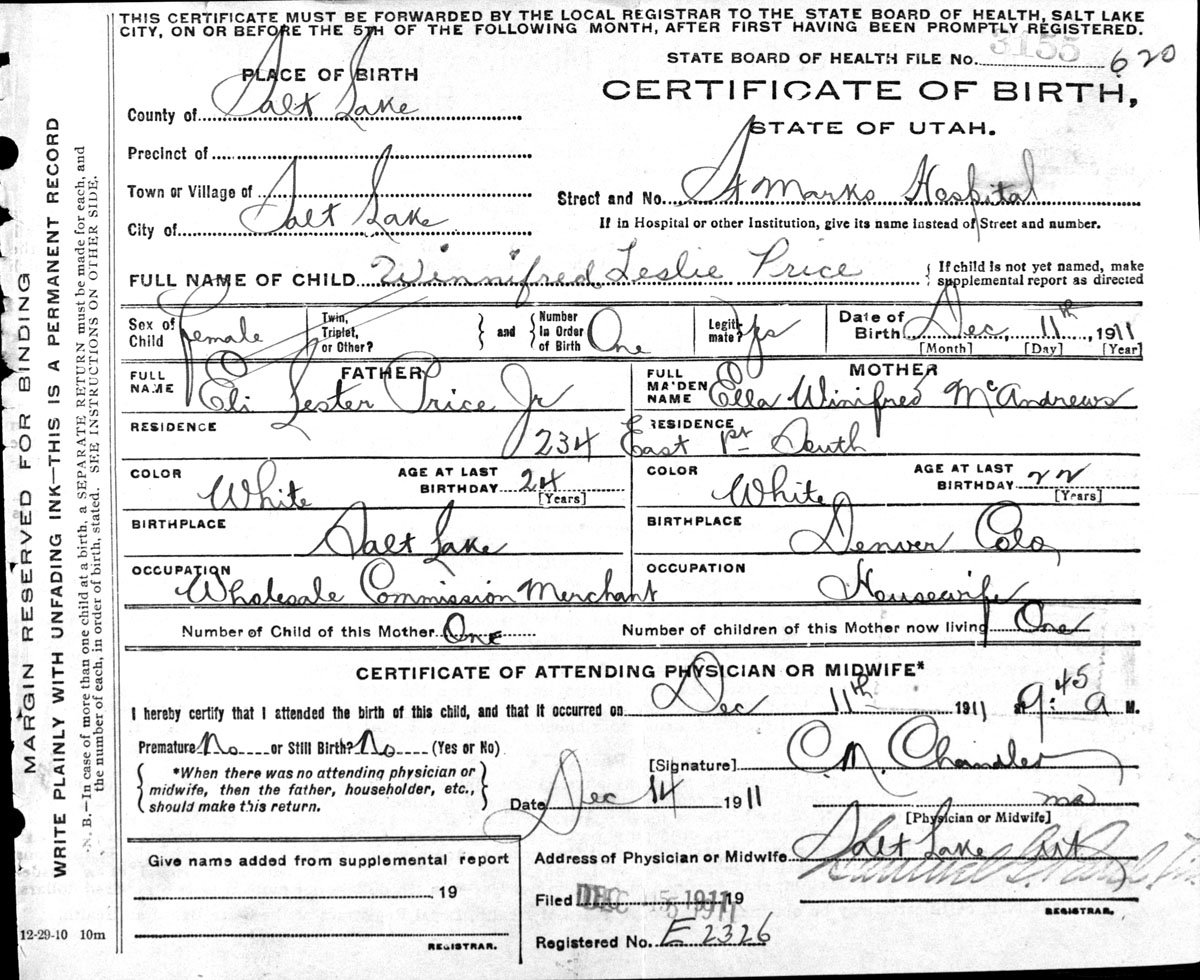 THIS CERTIFICATE MUST BE FORWARDED BY THE LOCAL REGISTRAR TO THE STATE BOARD OF HEALTH, SALT LAKE
CITY, ON OR BEFORE THE 5TH OF THE FOLLOWING MONTH, AFTER FIRST HAVING BEEN PROMPTLY REGISTERED.
3155
STATE BOARD OF HEALTH FILE No. 620
PLACE OF BIRTH
CERTIFICATE OF BIRTH,
STATE OF UTAH.
County of Salt Lake
Precinct of
Town or Village of
Street and No. St Marks Hospital
City of Salt Lake
If in Hospital or other Institution, give its name instead of Street and number.
FULL NAME OF CHILD Winnifred Leslie Price
{ If child is not yet named, make supplemental report as directed
Sex of Child female
Twin, Triplet, or Other? } and { Number in Order of Birth One
Legitimate? yes
Date of Birth Dec, 11th, 1911
[Month] [Day] [Year]
FATHER
FULL NAME Eli Lester Price Jr
MOTHER
FULL MAIDEN NAME Ella Winifred McAndrews
RESIDENCE RESIDENCE
234 East 1st South
COLOR White AGE AT LAST BIRTHDAY 24 [Years]
COLOR White AGE AT LAST BIRTHDAY 22 [Years]
BIRTHPLACE Salt Lake
BIRTHPLACE Denver Colo
OCCUPATION Wholesale Commission Merchant
OCCUPATION Housewife
Number of Child of this Mother One Number of children of this Mother now living One
CERTIFICATE OF ATTENDING PHYSICIAN OR MIDWIFE*
I hereby certify that I attended the birth of this child, and that it occurred on Dec 11th 1911 at 9:45 a M.
Premature No or Still Birth? No (Yes or No)
{ *When there was no attending physician or midwife, then the father, householder, etc., should make this return. }
[Signature] C. M. Chandler
Date Dec 14 1911 MD
[Physician or Midwife]
Give name added from supplemental report
19
REGISTRAR.
Address of Physician or Midwife Salt Lake
Filed DEC 15 1911 19
REGISTRAR.
Registered No. E 2326
12-29-10 10m
MARGIN RESERVED FOR BINDING
WRITE PLAINLY WITH UNFADING INK—THIS IS A PERMANENT RECORD
N. B.—In case of more than one child at a birth, a SEPARATE RETURN must be made for each, and
the number of each, in order of birth, stated. SEE INSTRUCTIONS ON OTHER SIDE.